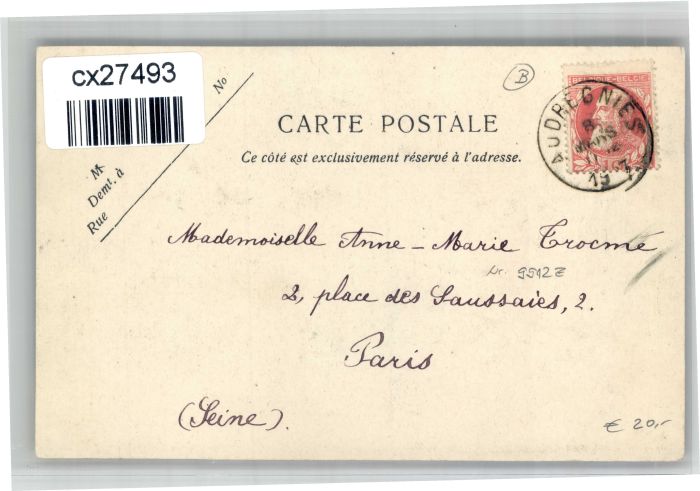 cx27493
B
BELGIQUE-BELGIË
AUDREGNIES
8
MARS
19
No
M
Demt. à
Rue
CARTE POSTALE
Ce côté est exclusivement réservé à l'adresse.
Mademoiselle Anne-Marie Trocmé
Nr. 9512Z
2, place des Saussaies, 2.
Paris
(Seine).
€ 20,-